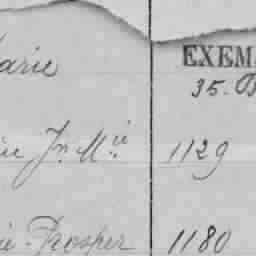 arie EXEM
35.
Jn Mie 1129
Prosper 1180